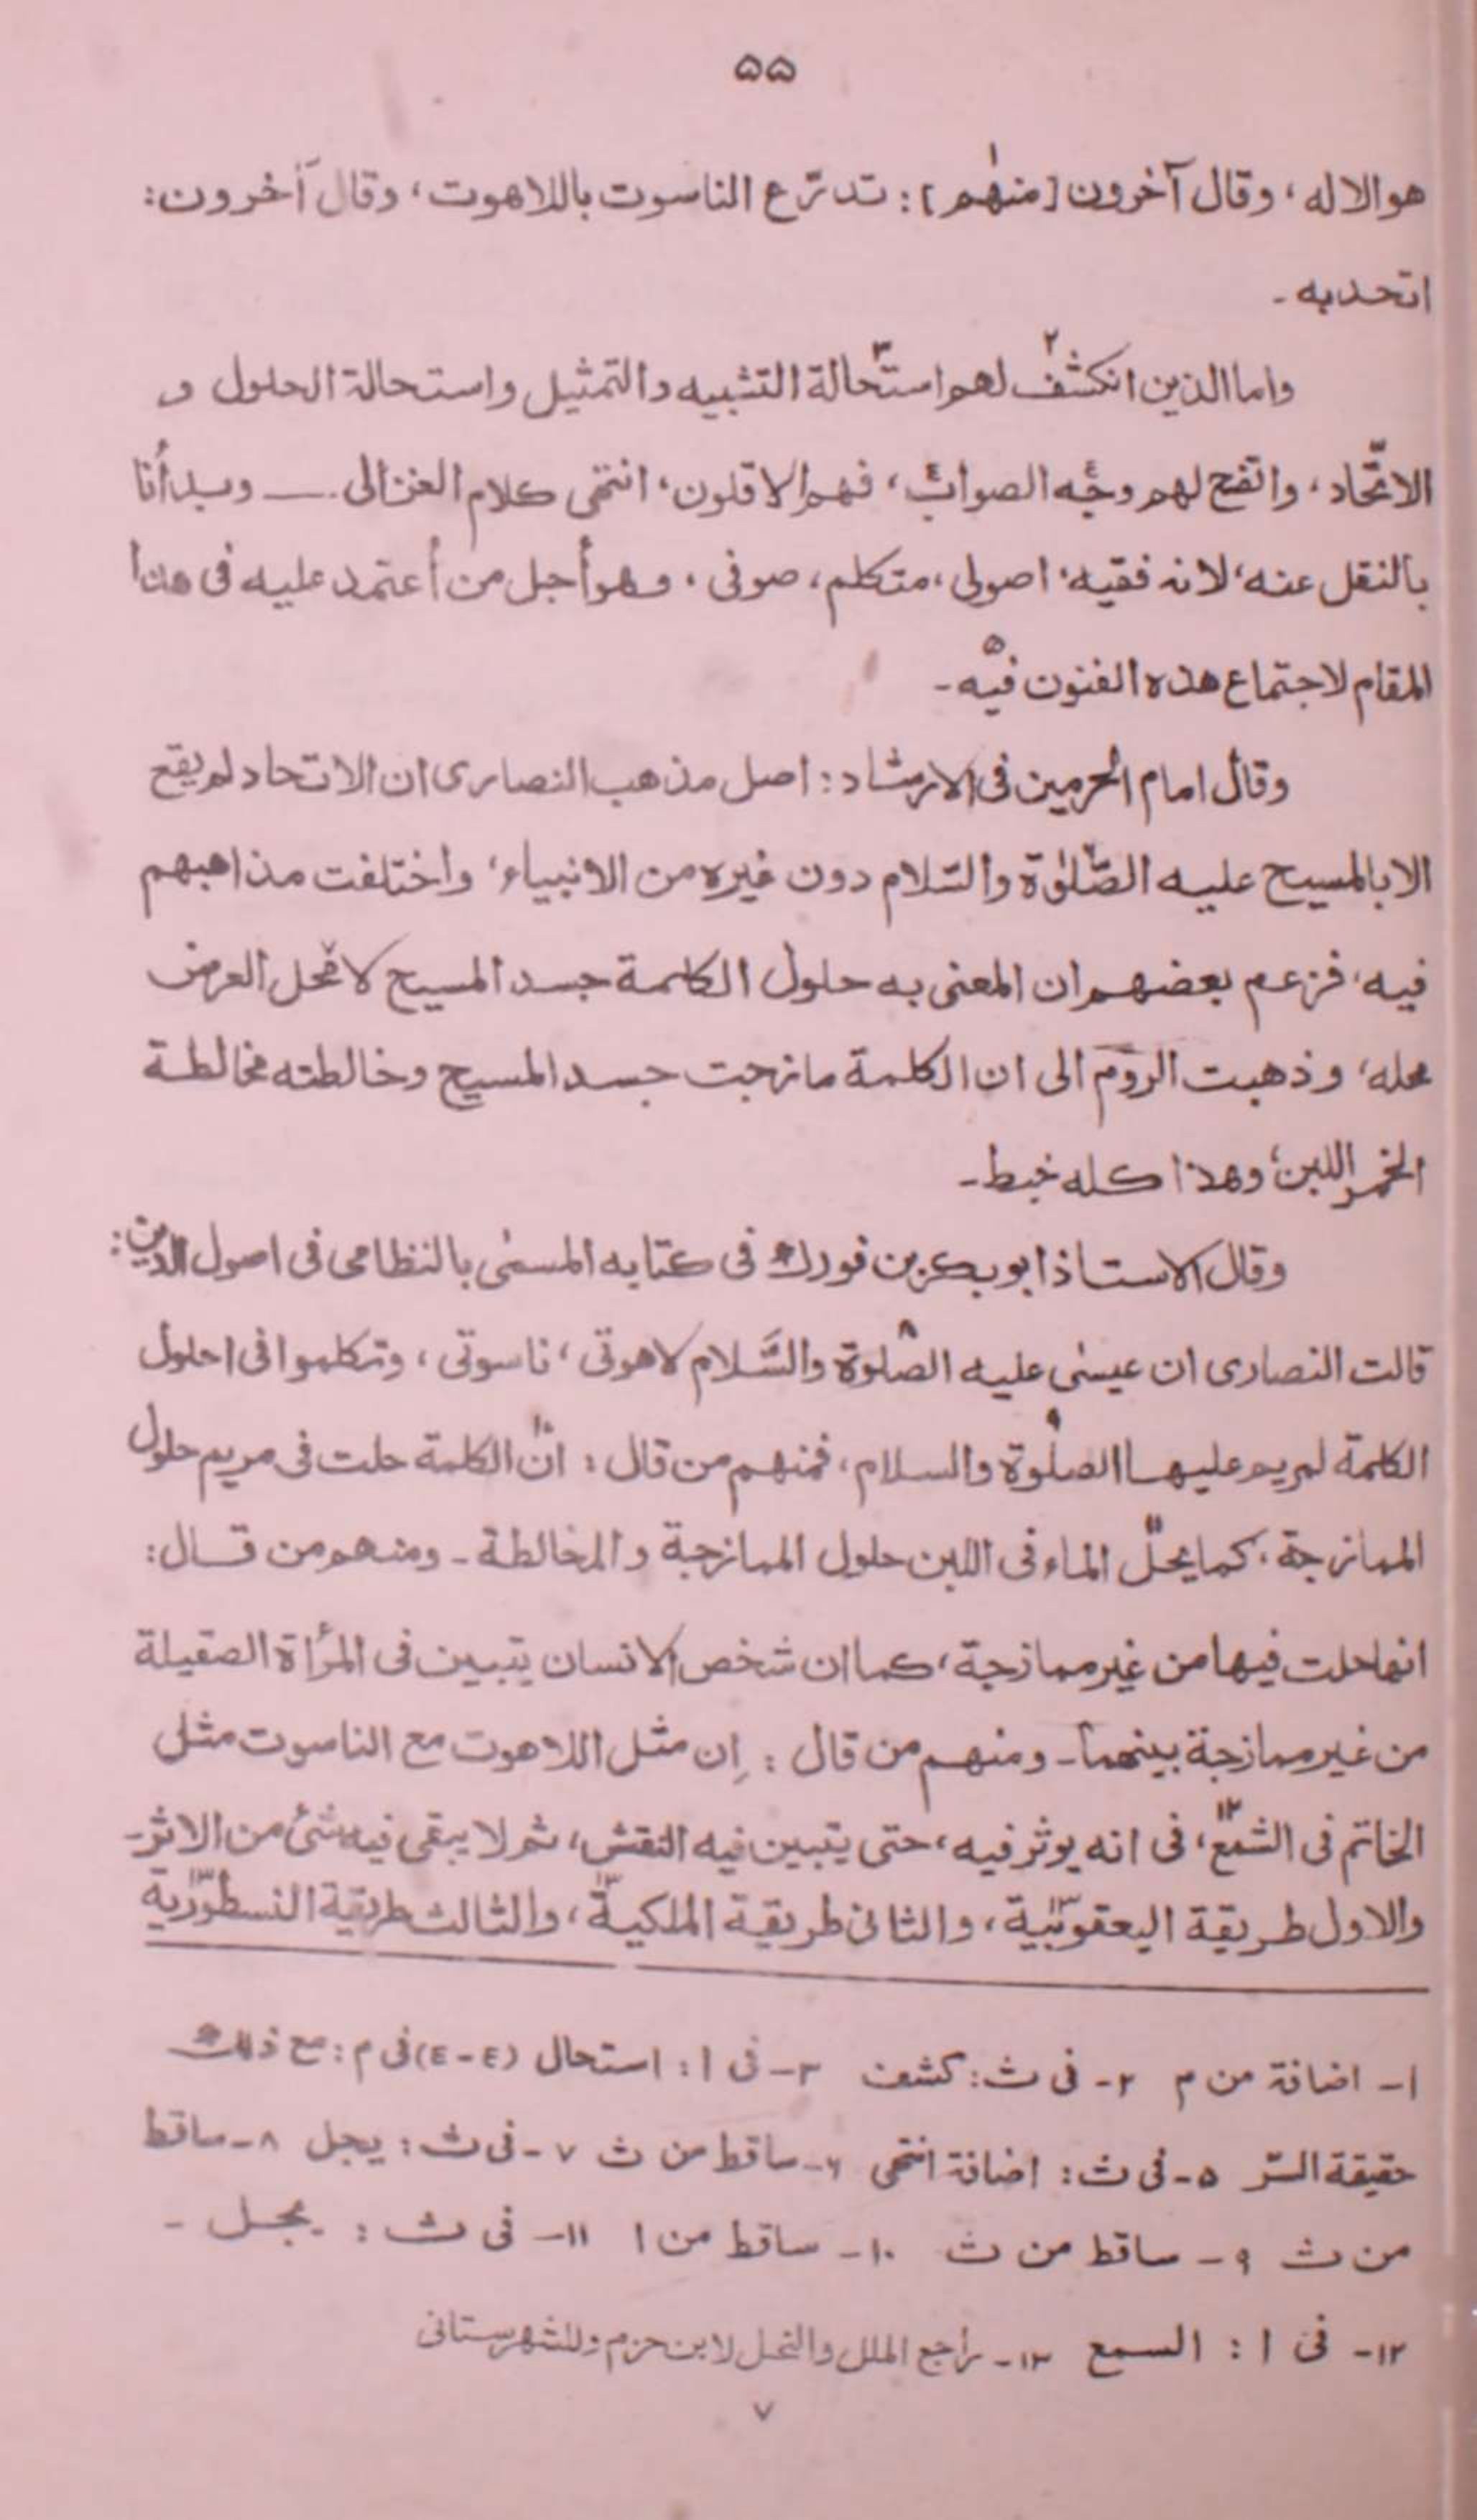 ۵۵
هو الاله، وقال آخرون [منهم]¹: تدرّع الناسوت باللاهوت، وقال آخرون:
اتحد به ـ
واما الذين انكشف² لهم استحالة³ التشبيه والتمثيل واستحالة الحلول و
الاتّحاد، واتضح لهم وجه⁴ الصواب⁴، فهم الاقلون، انتهى كلام الغزالى ـــ وبدأنا
بالنقل عنه، لانه فقيه، اصولى، متكلم، صوفى، وهو أجل من أعتمد عليه فى هذا
المقام لاجتماع هذه الفنون فيه⁵ ـ
وقال امام الحرمين فى الارشاد: اصل مذهب النصارى ان الاتحاد لم يقع
الا بالمسيح عليه الصّلوٰة⁶ والسّلام دون غيره من الانبياء، واختلفت مذاهبهم
فيه، فزعم بعضهم ان المعنى به حلول الكلمة جسد المسيح كما يحل⁷ العرض
محله، وذهبت الروم الى ان الكلمة مازجت جسد المسيح وخالطته مخالطة
الخمر اللبن، وهذا كله خبط ـ
وقال الاستاذ ابوبكر بن فورك فى كتابه المسمٰى بالنظامى فى اصول الدين:
قالت النصارى ان عيسٰى عليه الصّلوة⁸ والسَّلام لاهوتى، ناسوتى، وتكلموا فى احلول
الكلمة لمريم عليها الصلوة⁹ والسلام، فمنهم من قال: انّ¹⁰ الكلمة حلت فى مريم حلول
الممازجة، كما يحلّ¹¹ الماء فى اللبن حلول الممازجة والمخالطة ـ ومنهم من قال:
انها حلت فيها من غير ممازجة، كما ان شخص الانسان يتبين فى المرأة الصقيلة
من غير ممازجة بينهما ـ ومنهم من قال: إن مثل اللاهوت مع الناسوت مثل
الخاتم فى الشمع¹²، فى انه يوثر فيه، حتى يتبين فيه النقش، ثم لا يبقى فيه شئ من الاثر ـ
والاول طريقة اليعقوبية¹³، والثانى طريقة الملكية¹³، والثالث طريقة النسطورية¹³
۱ـ اضافة من م ۲ـ فى ث: كشف ۳ـ فى ا: استحال (٤-٤) فى م: مع ذلك
حقيقة السّر ۵ـ فى ث: اضافة انتهى ۶ـ ساقط من ث ۷ـ فى ث: يجل ۸ـ ساقط
من ث ۹ـ ساقط من ث ۱۰ـ ساقط من ا ۱۱ـ فى ث: يجل ـ
۱۲ـ فى ا: السمع ۱۳ـ راجع الملل والنحل لابن حزم وللشهرستانى
۷